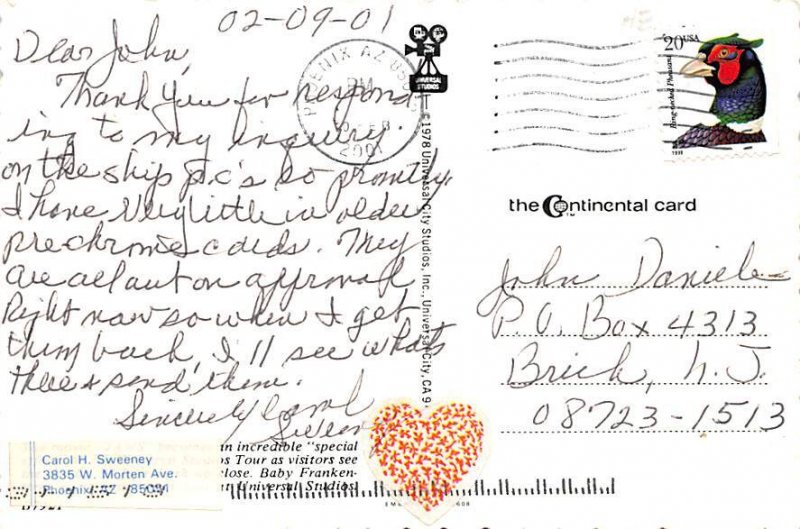 02-09-01
Dear John,
Thank you for respond-
ing to my inquiry
on the ship p.c's so promptly.
I have very little in older
pre chrome cards. They
are all out on approval
right now so when I get
them back, I'll see whats
there & send them.
Sincerely Carol
Sweeney
PHOENIX AZ 850
PM
FEB
2001
UNIVERSAL
STUDIOS
© 1978 Universal City Studios, Inc., Universal City, CA 9
20 USA
Ring-necked Pheasant
1998
the Continental card
TM
John Daniele
P.O. Box 4313
Brick, N.J.
08723-1513
Carol H. Sweeney
3835 W. Morten Ave.
Phoenix AZ 85051
an incredible "special
s Tour as visitors see
close. Baby Franken-
at Universal Studios.
B7921